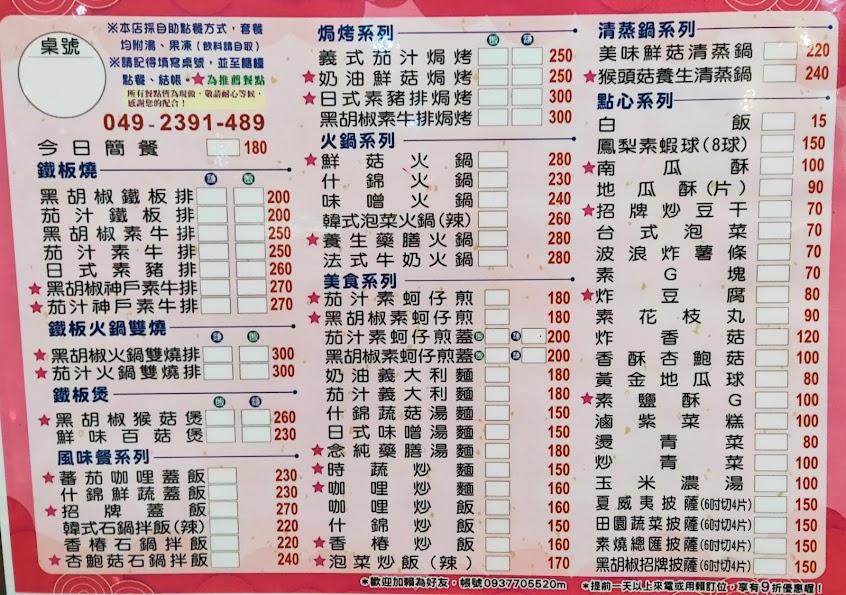 桌號
※本店採自助點餐方式，套餐
均附湯、果凍（飲料請自取）
※請記得填寫桌號，並至櫃檯
點餐、結帳，★為推薦餐點
所有餐點皆為現做，敬請耐心等候，
感謝您的配合！
049-2391-489
今日簡餐 180
鐵板燒 麵 飯
黑胡椒鐵板排 200
茄汁鐵板排 200
黑胡椒素牛排 250
茄汁素牛排 250
日式素豬排 260
★黑胡椒神戶素牛排 270
★茄汁神戶素牛排 270
鐵板火鍋雙燒 麵 飯
★黑胡椒火鍋雙燒排 300
★茄汁火鍋雙燒排 300
鐵板煲 飯 麵
★黑胡椒猴菇煲 260
鮮味百菇煲 230
風味餐系列
★蕃茄咖哩蓋飯 230
什錦鮮蔬蓋飯 230
★招牌蓋飯 270
韓式石鍋拌飯(辣) 220
香椿石鍋拌飯 220
★杏鮑菇石鍋拌飯 240
焗烤系列 飯 麵
義式茄汁焗烤 250
★奶油鮮菇焗烤 250
★日式素豬排焗烤 300
黑胡椒素牛排焗烤 300
火鍋系列
★鮮菇火鍋 280
什錦火鍋 230
味噌火鍋 240
韓式泡菜火鍋(辣) 260
★養生藥膳火鍋 280
法式牛奶火鍋 280
美食系列
★茄汁素蚵仔煎 180
★黑胡椒素蚵仔煎 180
茄汁素蚵仔煎蓋 飯 麵 200
黑胡椒素蚵仔煎蓋 飯 麵 200
奶油義大利麵 180
茄汁義大利麵 180
什錦蔬菇湯麵 150
日式味噌湯麵 150
★念純藥膳湯麵 180
★時蔬炒麵 150
★咖哩炒麵 160
咖哩炒飯 160
什錦炒飯 150
★香椿炒飯 160
★泡菜炒飯(辣) 170
清蒸鍋系列
美味鮮菇清蒸鍋 220
★猴頭菇養生清蒸鍋 240
點心系列
白飯 15
鳳梨素蝦球(8球) 150
★南瓜酥 100
地瓜酥(片) 90
★招牌炒豆干 70
台式泡菜 70
波浪炸薯條 70
素G塊 70
★炸豆腐 80
素花枝丸 90
炸香菇 120
香酥杏鮑菇 100
黃金地瓜球 80
★素鹽酥G 100
滷紫菜糕 100
燙青菜 80
炒青菜 100
玉米濃湯 100
夏威夷披薩(6吋切4片) 150
田園蔬菜披薩(6吋切4片) 150
素燒總匯披薩(6吋切4片) 150
黑胡椒招牌披薩(6吋切4片) 150
*歡迎加賴為好友，帳號0937705520m
*提前一天以上來電或用賴訂位，享有9折優惠喔！